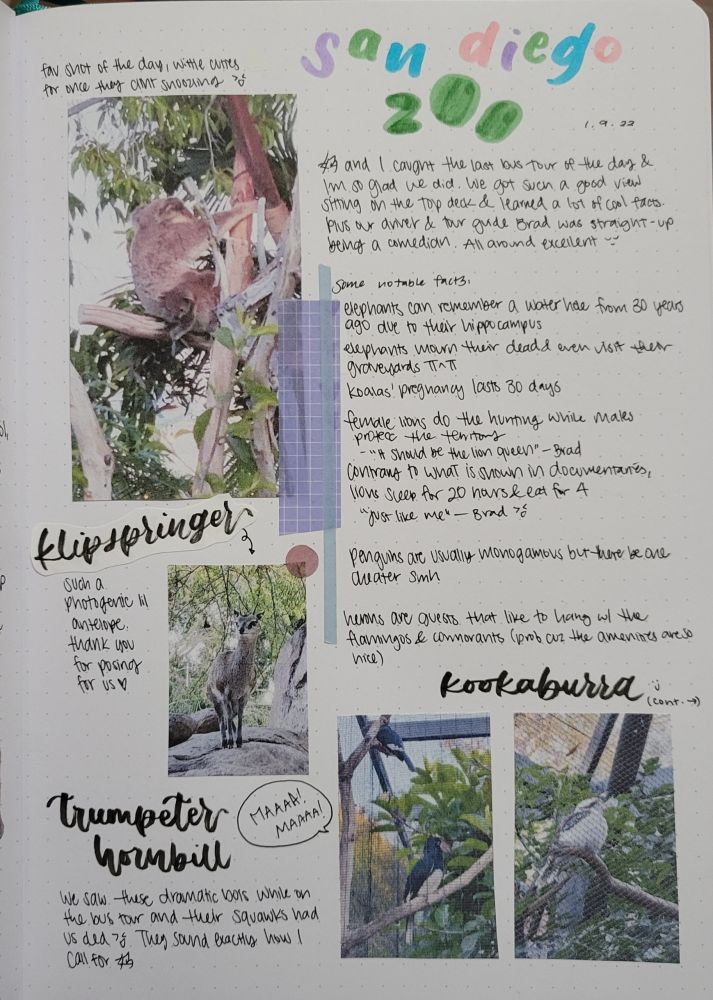 san diego
zoo
1.9.22
fav shot of the day, wittle cuties
for once they aint snoozing
and I caught the last bus tour of the day &
Im so glad we did. We got such a good view
sitting on the top deck & learned a lot of cool facts.
Plus our driver & tour guide Brad was straight-up
being a comedian. All around excellent
Some notable facts:
elephants can remember a water hole from 30 years
ago due to their hippocampus
elephants mourn their dead & even visit their
graveyards π^π
koalas' pregnancy lasts 30 days
female lions do the hunting while males
protec the territory
-"it should be the lion queen" - Brad
Contrary to what is shown in documentaries,
lions sleep for 20 hours & eat for 4
"just like me" - Brad
penguins are usually monogamous but there be one
cheater smh
herons are guests that like to hang w/ the
flamingos & cormorants (prob cuz the amenities are so
nice)
klipspringer
such a
photogenic lil
antelope.
thank you
for posing
for us ♡
kookaburra
(cont. →)
trumpeter
hornbill
MAAAA!
MAAAA!
We saw these dramatic bois while on
the bus tour and their squawks had
us ded. They sound exactly how I
call for